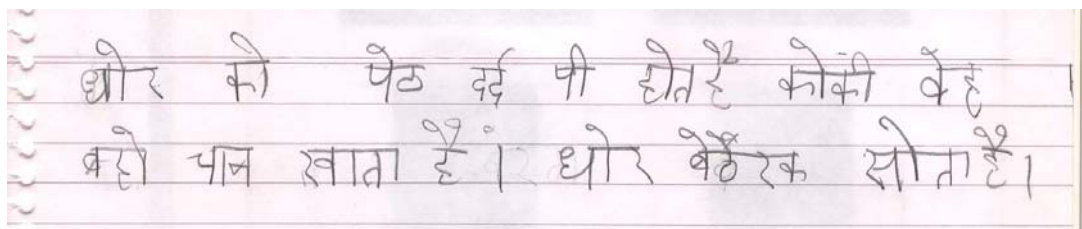 धोर को पेठ दर्द पी होत है कोकी वेह ।
बहो पाज खाता है । धोर बेठैरक सोता है ।